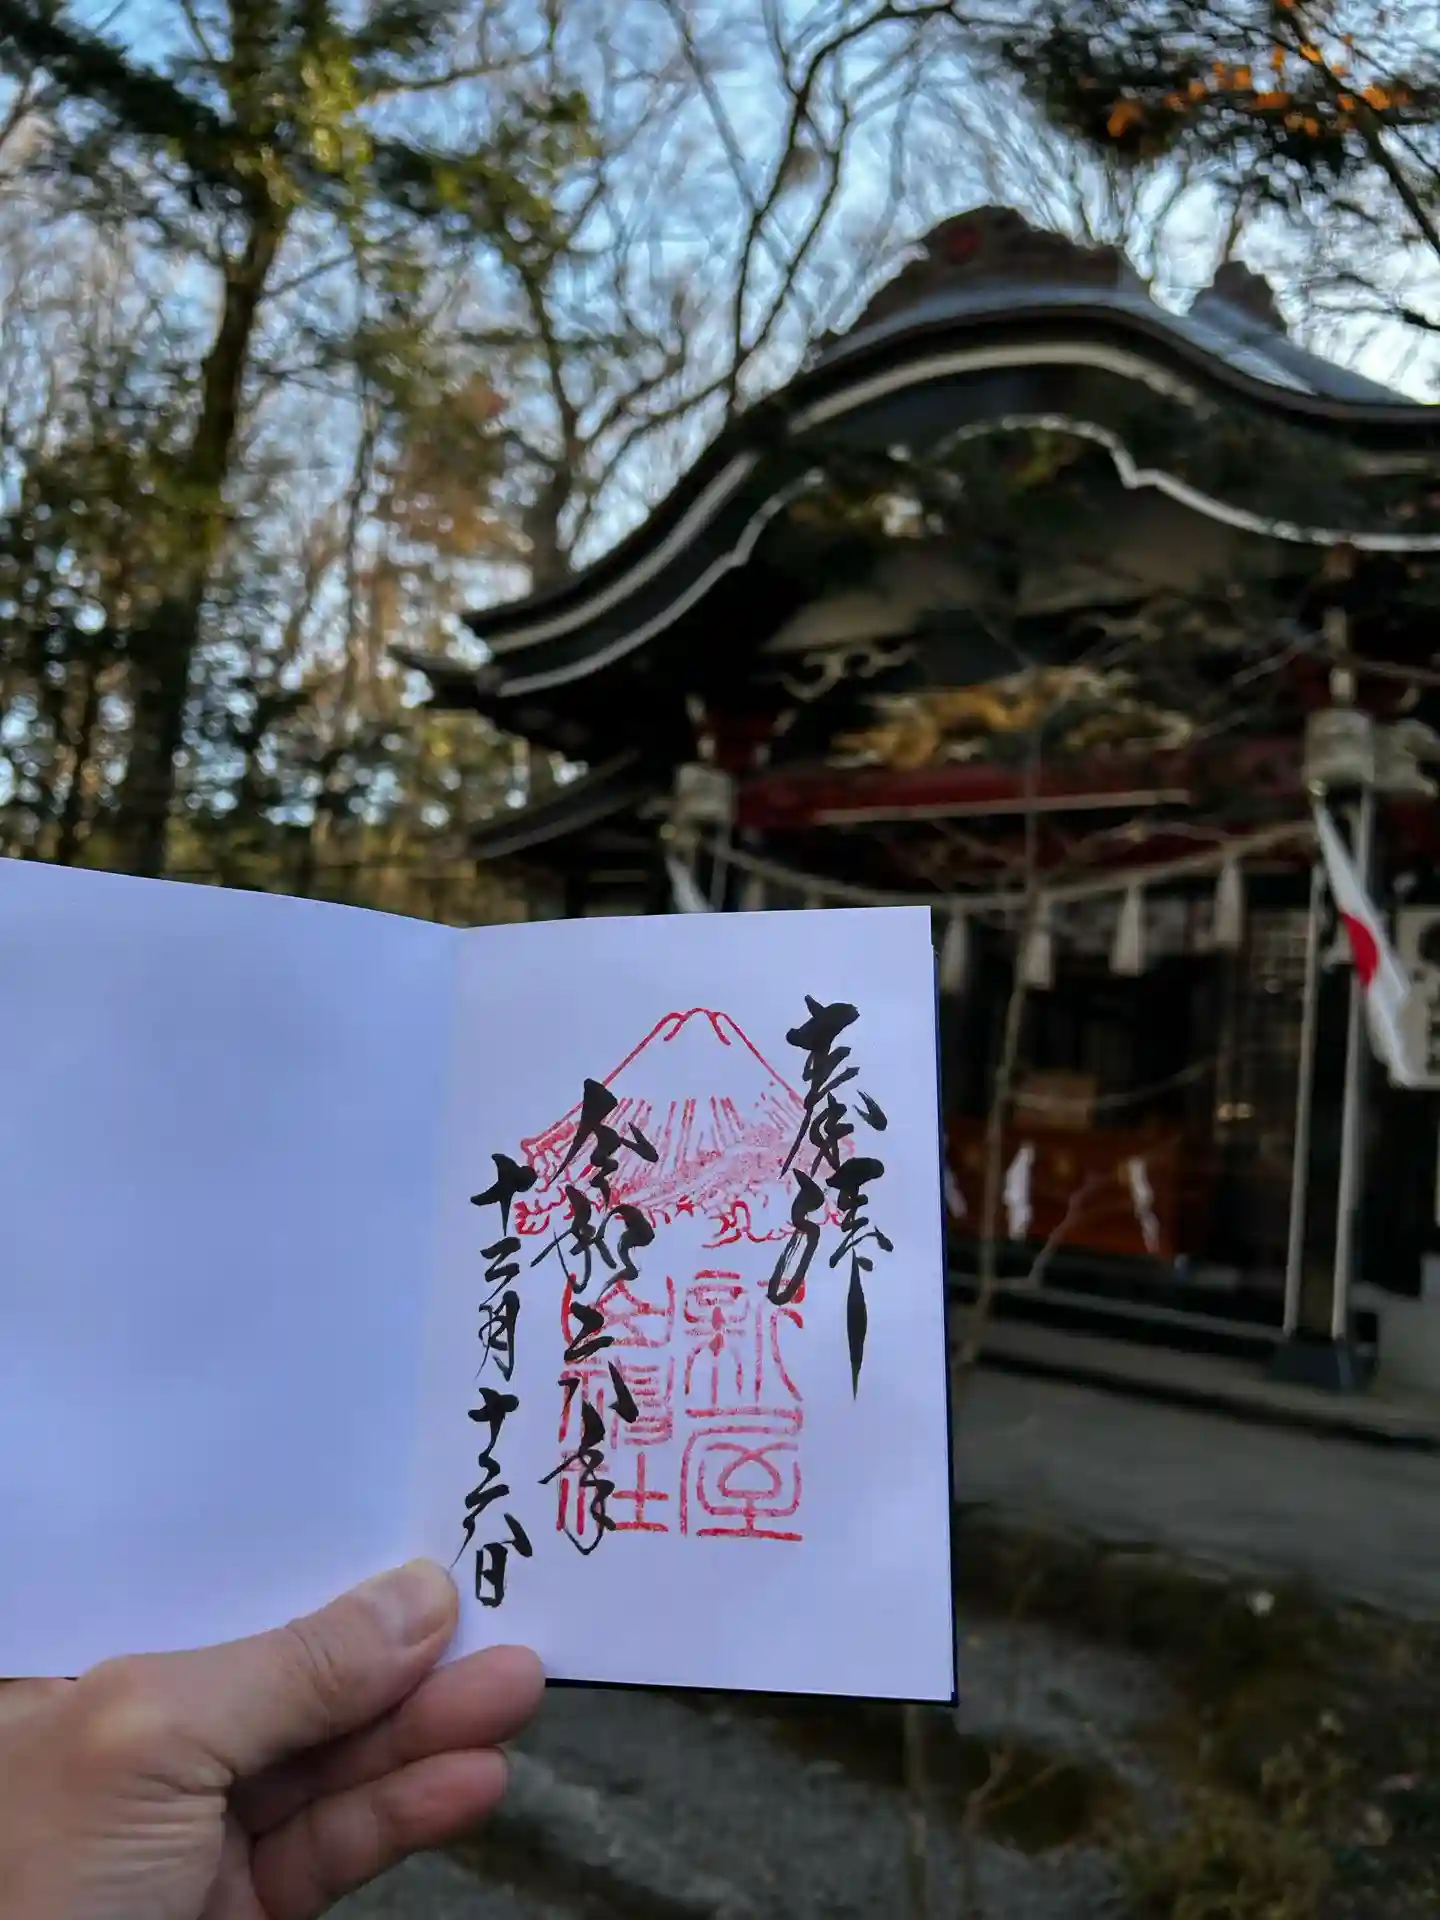 奉拝
新屋
山神社
令和六年
十二月十六日